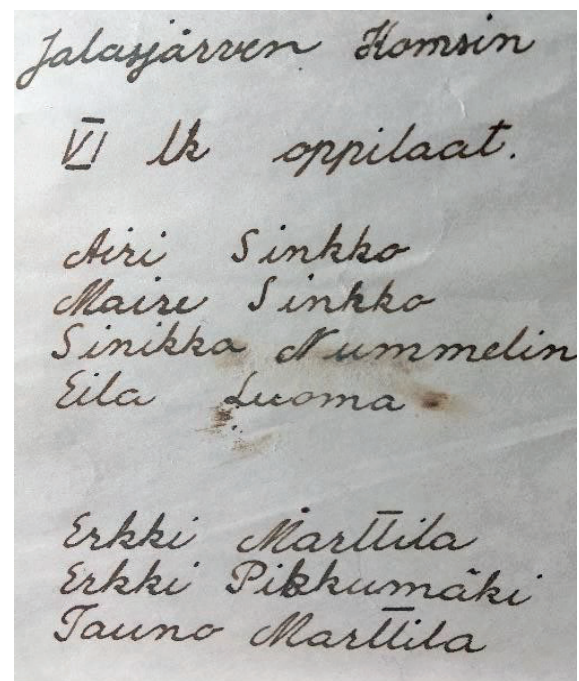 Jalasjärven Komsin
VI lk oppilaat.
Airi Sinkko
Maire Sinkko
Sinikka Nummelin
Eila Luoma
Erkki Marttila
Erkki Pikkumäki
Tauno Marttila